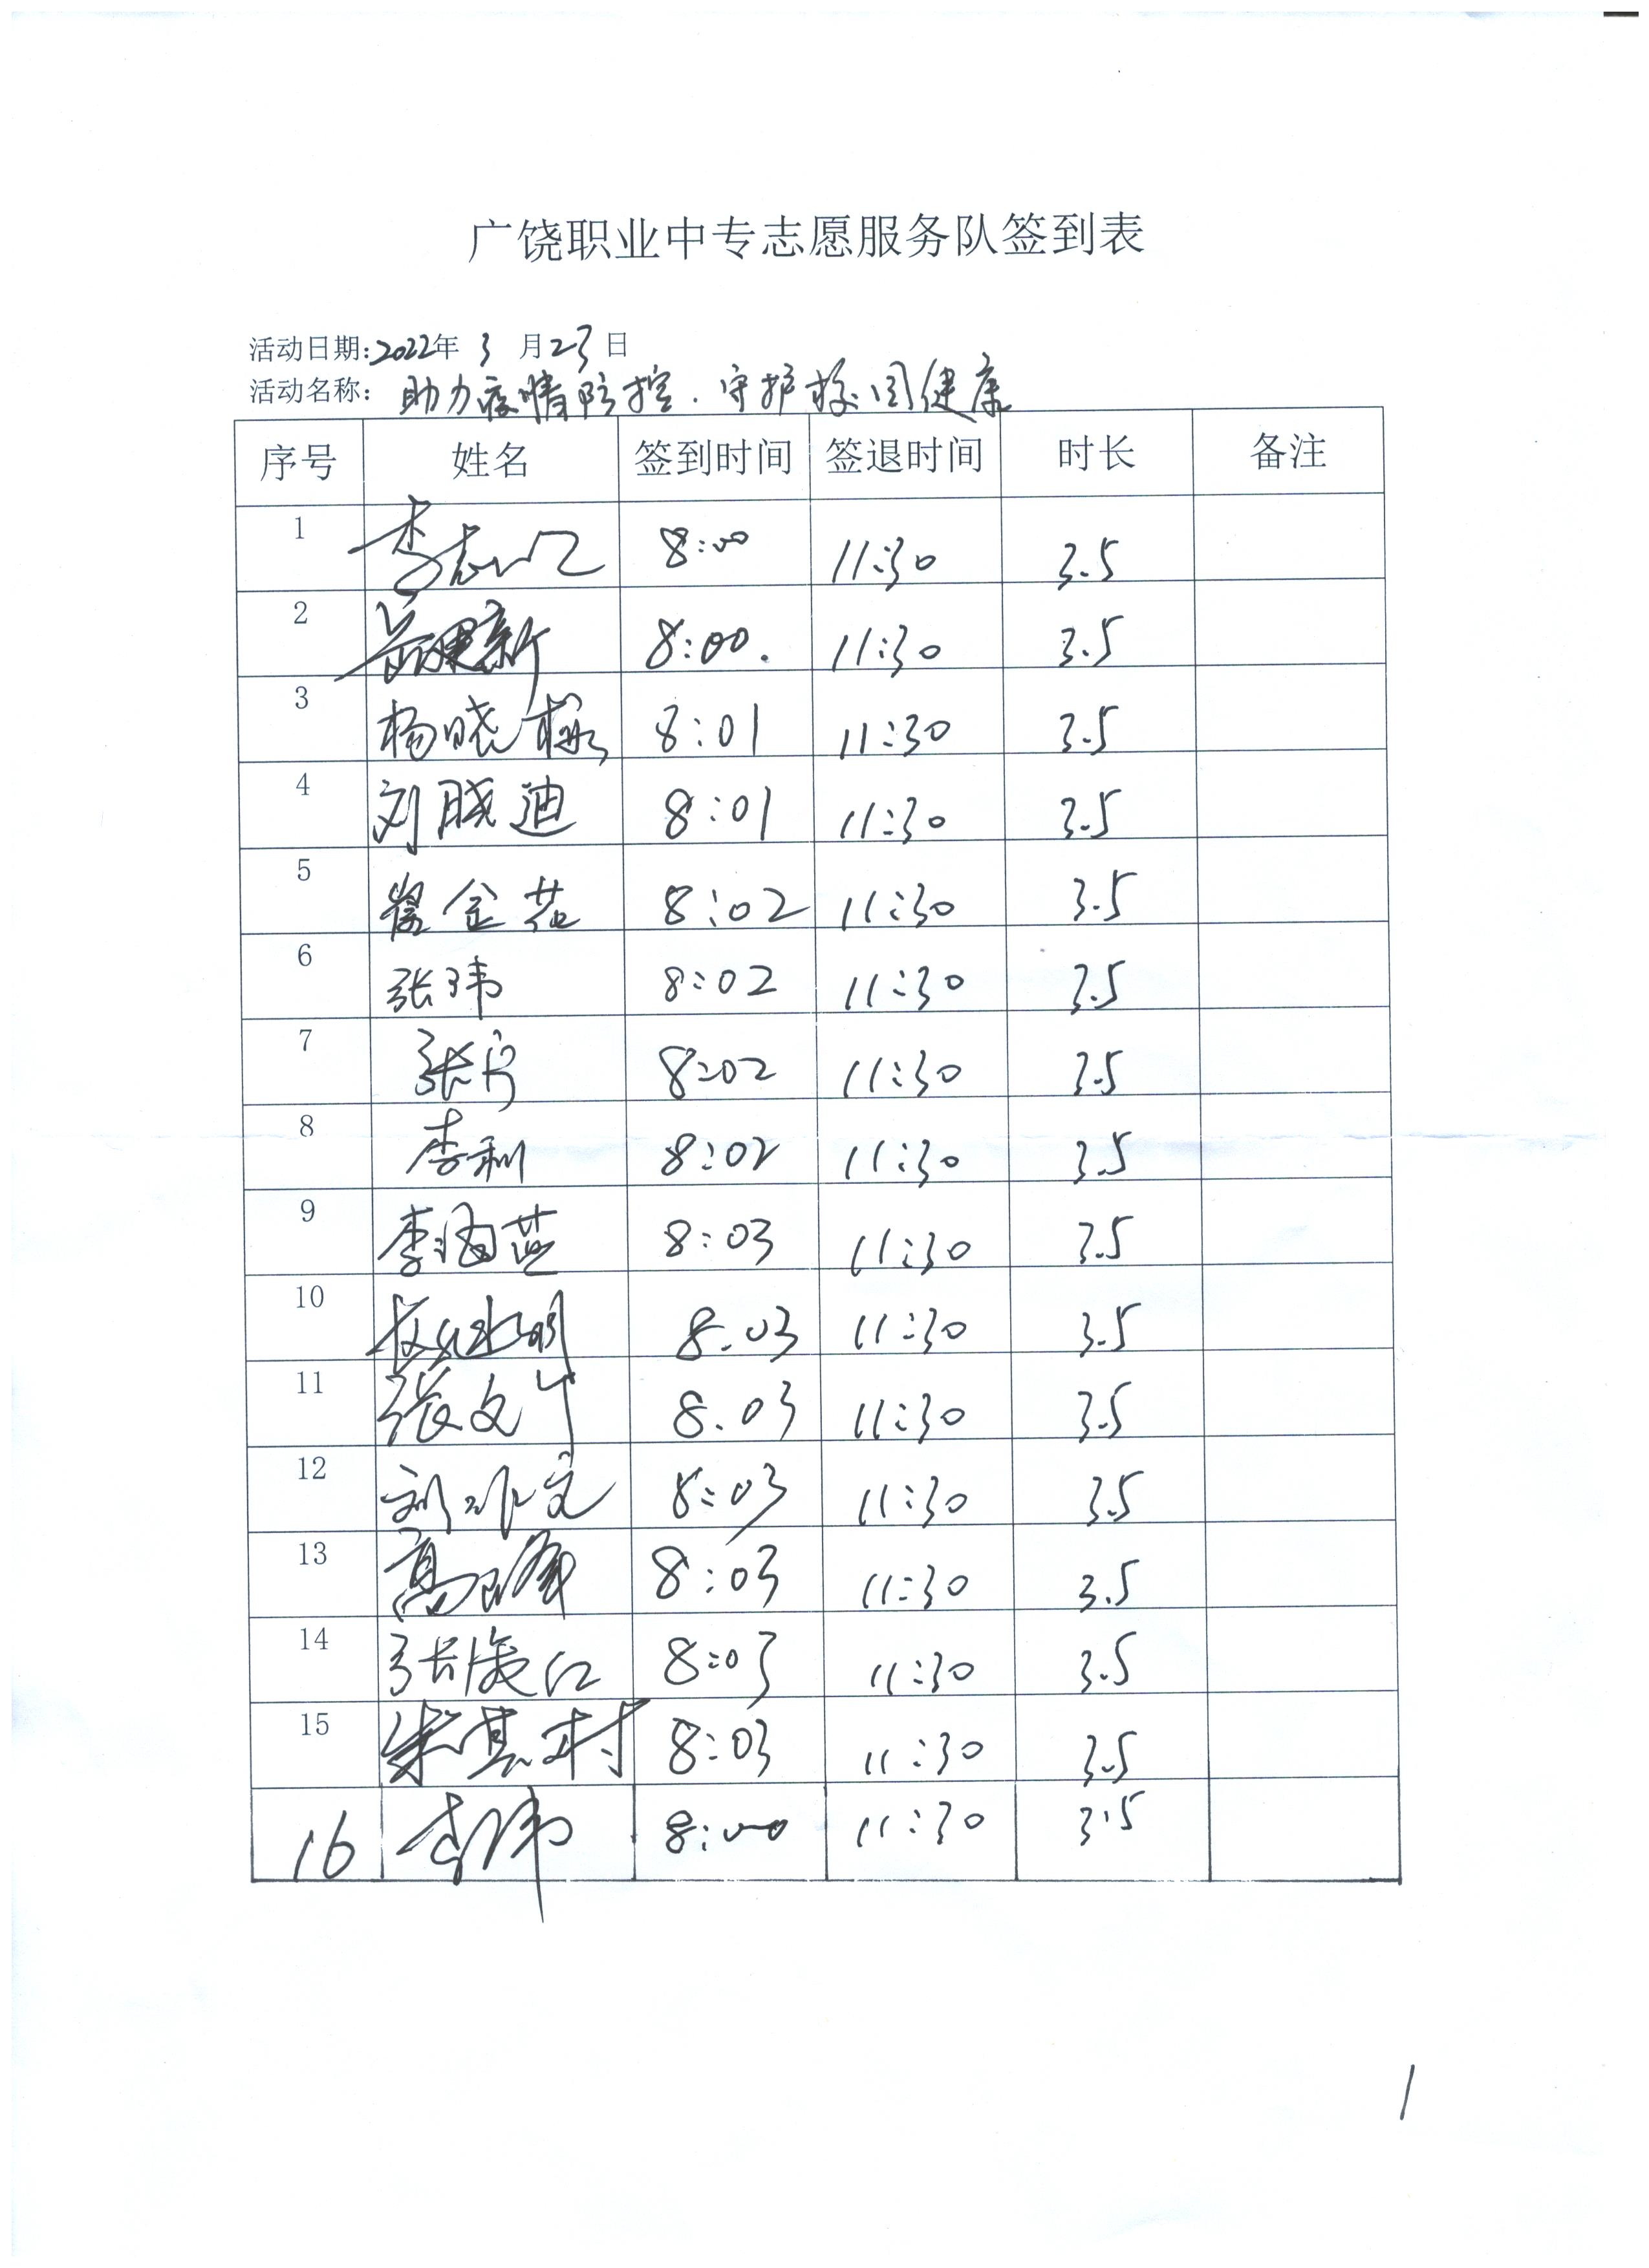 广饶职业中专志愿服务队签到表
活动日期:2022年 3 月 23 日
活动名称: 助力疫情防控.守护校园健康
序号 姓名 签到时间 签退时间 时长 备注
1 8:00 11:30 3.5
2 8:00. 11:30 3.5
3 杨晓梅 8:01 11:30 3.5
4 刘晓迪 8:01 11:30 3.5
5 金花 8:02 11:30 3.5
6 张玮 8:02 11:30 3.5
7 张 8:02 11:30 3.5
8 李利 8:02 11:30 3.5
9 李海蓝 8:03 11:30 3.5
10 8.03 11:30 3.5
11 张文 8.03 11:30 3.5
12 刘 8:03 11:30 3.5
13 高 峰 8:03 11:30 3.5
14 张 江 8:03 11:30 3.5
15 朱其村 8:03 11:30 3.5
16 李伟 8:00 11:30 3.5
1